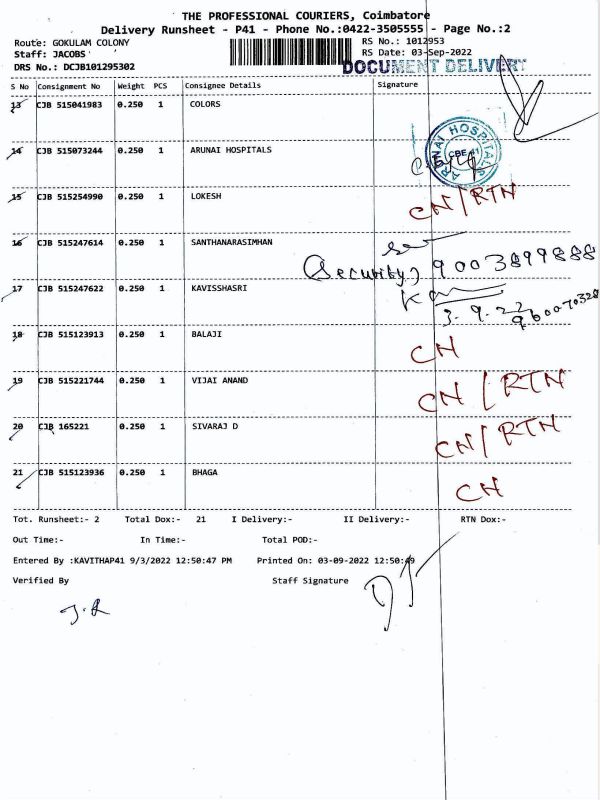 THE PROFESSIONAL COURIERS, Coimbatore
Delivery Runsheet - P41 - Phone No.:0422-3505555 - Page No.:2
Route: GOKULAM COLONY RS No.: 1012953
Staff: JACOBS RS Date: 03-Sep-2022
DRS No.: DCJB101295302 DOCUMENT DELIVERY
S No Consignment No Weight PCS Consignee Details Signature
13 CJB 515041983 0.250 1 COLORS
14 CJB 515073244 0.250 1 ARUNAI HOSPITALS
ARUNAI HOSPITALS CBE
15 CJB 515254990 0.250 1 LOKESH CN/RTN
16 CJB 515247614 0.250 1 SANTHANARASIMHAN
(Security) 9003899888
17 CJB 515247622 0.250 1 KAVISSHASRI
3.9.22
18 CJB 515123913 0.250 1 BALAJI CN
19 CJB 515221744 0.250 1 VIJAI ANAND CN/RTN
20 CJB 165221 0.250 1 SIVARAJ D CN/RTN
21 CJB 515123936 0.250 1 BHAGA CN
Tot. Runsheet:- 2 Total Dox:- 21 I Delivery:- II Delivery:- RTN Dox:-
Out Time:- In Time:- Total POD:-
Entered By :KAVITHAP41 9/3/2022 12:50:47 PM Printed On: 03-09-2022 12:50:49
Verified By Staff Signature
J.R